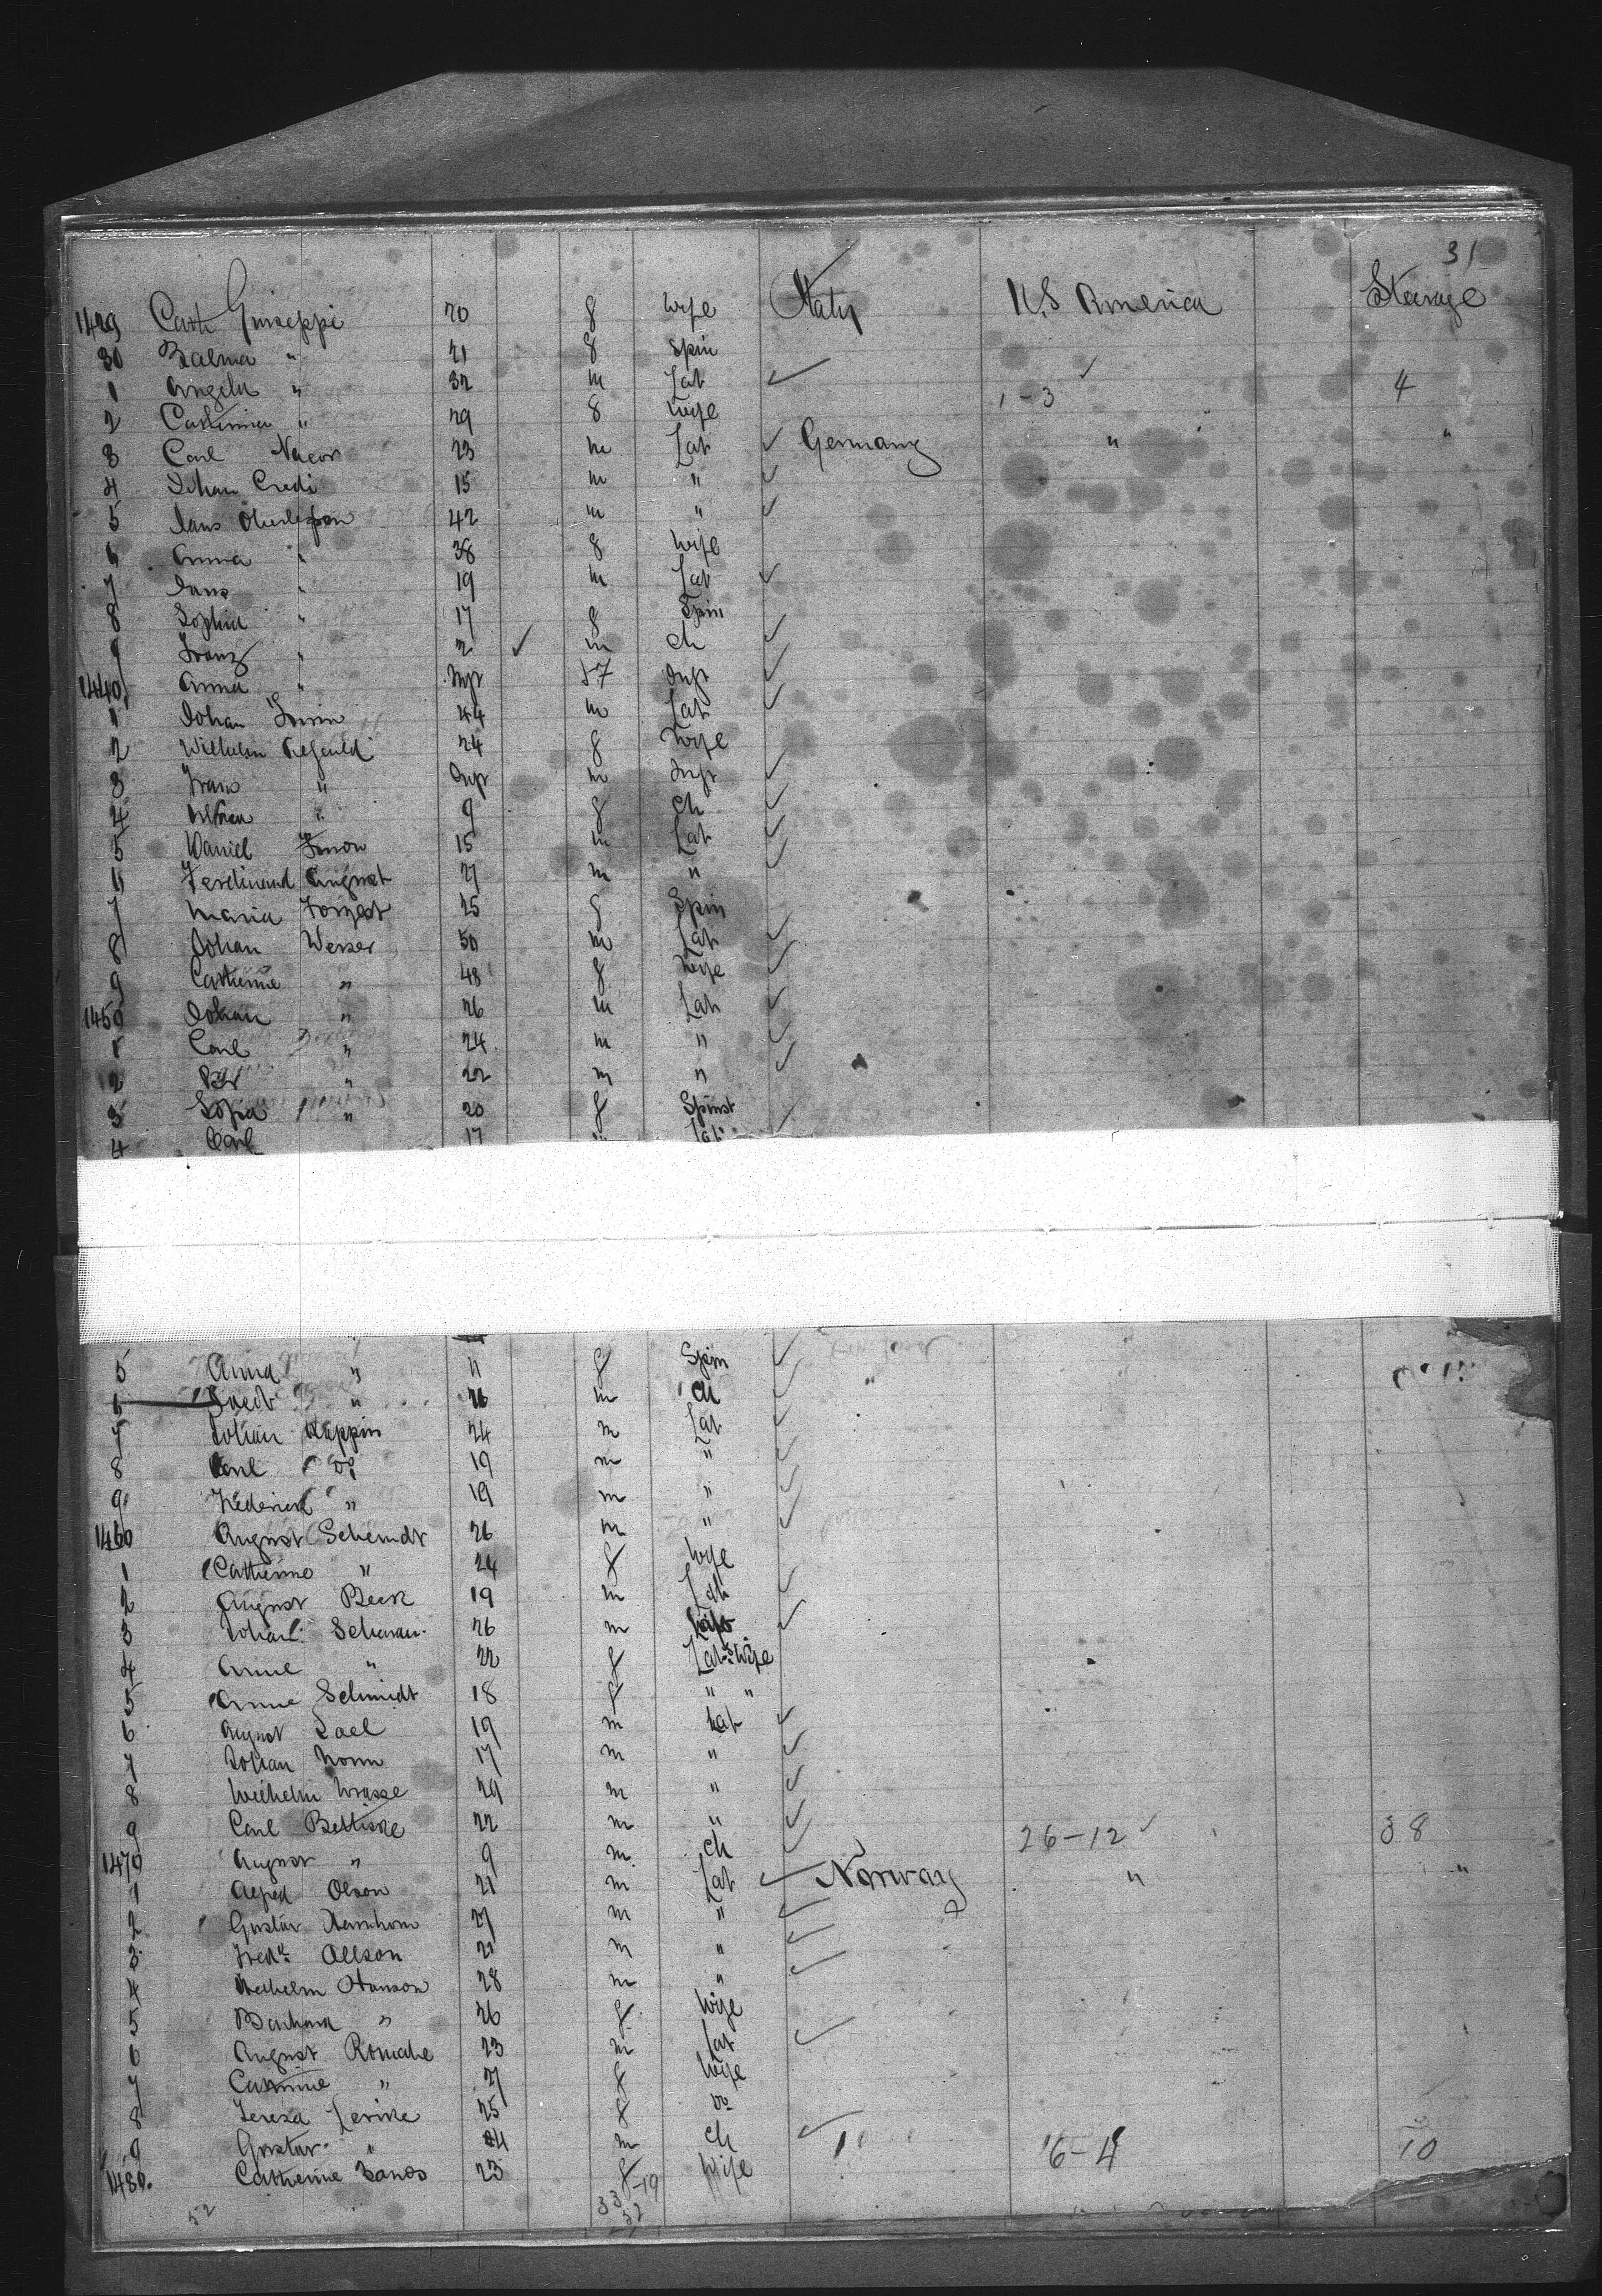 31
1429 Cath Guiseppi 20 f Wife Italy U.S America Steerage
30 Balma " 21 f Spin
1 Angelu " 32 m Lab ✓ 1-3 ✓ 4
2 Catherina " 29 f Wife
3 Carl 23 m Lab ✓ Germany " "
4 Johan Credi 15 m " ✓
5 Hans 42 m " ✓
6 Anna " 38 f Wife
7 Hans " 19 m Lab ✓
8 Sophia " 17 f Spin
9 Franz " 2 ✓ m ch ✓
1440 Anna " Inft f Inft ✓
1 Johan 44 m Lab ✓
2 Wilhelm 24 f Wife
3 Frans " Inft m Inft ✓
4 " 9 f ch ✓
5 Daniel 15 m Lab ✓
6 Ferdinand August 21 m " ✓
7 Maria Forzest 25 f Spin
8 Johan Weser 50 m Lab ✓
9 Catherine " 48 f Wife ✓
1450 Johan " 26 m Lab ✓
1 Carl " 24 m " ✓
2 " 22 m " ✓
3 Sofia " 20 f Spinst ✓
4 Carl 17 m Lab
5 Anna " 11 f Spin ✓
6 " m ch ✓
7 Johan Kappin 24 m Lab ✓
8 Carl Do 19 m " ✓
9 Frederick " 19 m " ✓
1460 August Schemdt 26 m " ✓
1 Catherine " 24 f Wife
2 August Beck 19 m Lab ✓
3 Johan 26 m ✓
4 Anne " 22 f Lab's Wife
5 Anne Schmidt 18 f " "
6 August Lael 19 m Lab ✓
7 Johan Norm 17 m " ✓
8 Wilhelm Wrasse 29 m " ✓
9 Carl Bettiske 22 m " ✓ 26-12 ✓ 38
1470 August " 9 m ch ✓
1 Alfred Olson 21 m Lab ✓ Norway " "
2 Gustav 27 m " ✓
3 Fredk Allson 21 m " ✓
4 Wilhelm Hanson 28 m " ✓
5 Barbara " 26 f Wife
6 August Romahe 23 m Lab ✓
7 Catherine " 27 f Wife
8 Tereza Lerike 25 f Do
9 Gustav " m ch ✓ 6-4 10
1480. Catherine Banos 23 f Wife
52 33-19
32